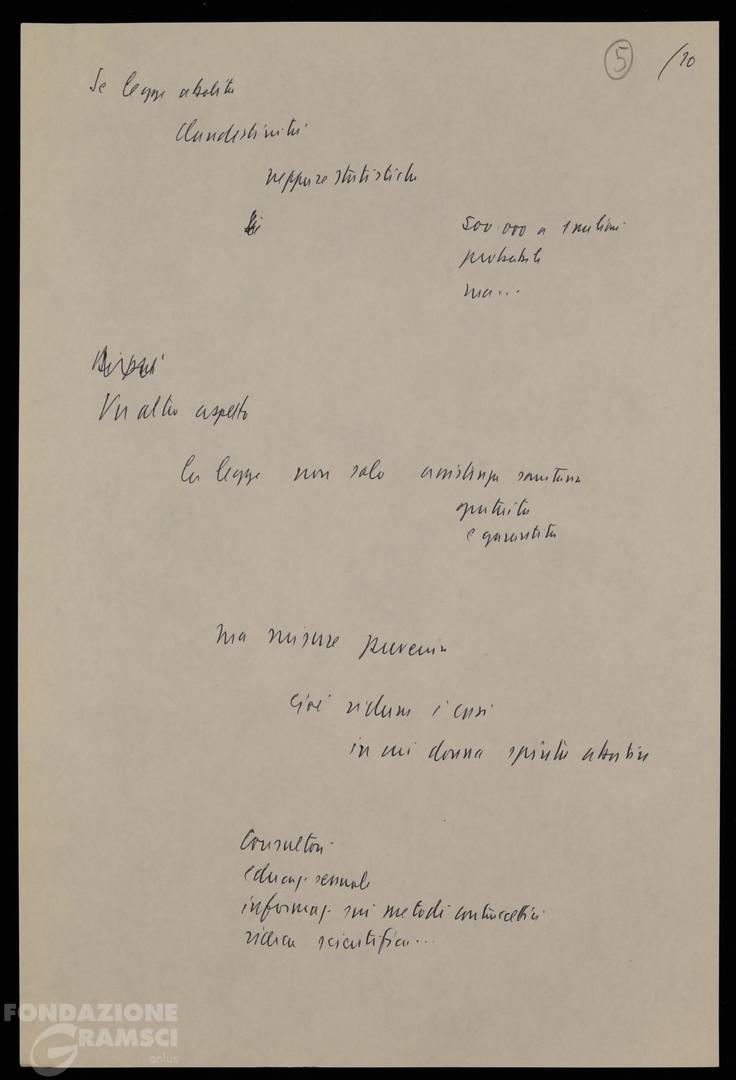 5 /10
Se legge abolita
clandestinità
neppure statistiche
500.000 a 1 milione
probabile
ma...
Un altro aspetto
la legge non solo assistenza sanitaria
gratuita
e garantita
ma misure prevenire
cioè ridurre i casi
in cui donna spinta abortire
Consultori
educaz. sessuale
informaz. sui metodi contraccettivi
ricerca scientifica...
FONDAZIONE
GRAMSCI
onlus